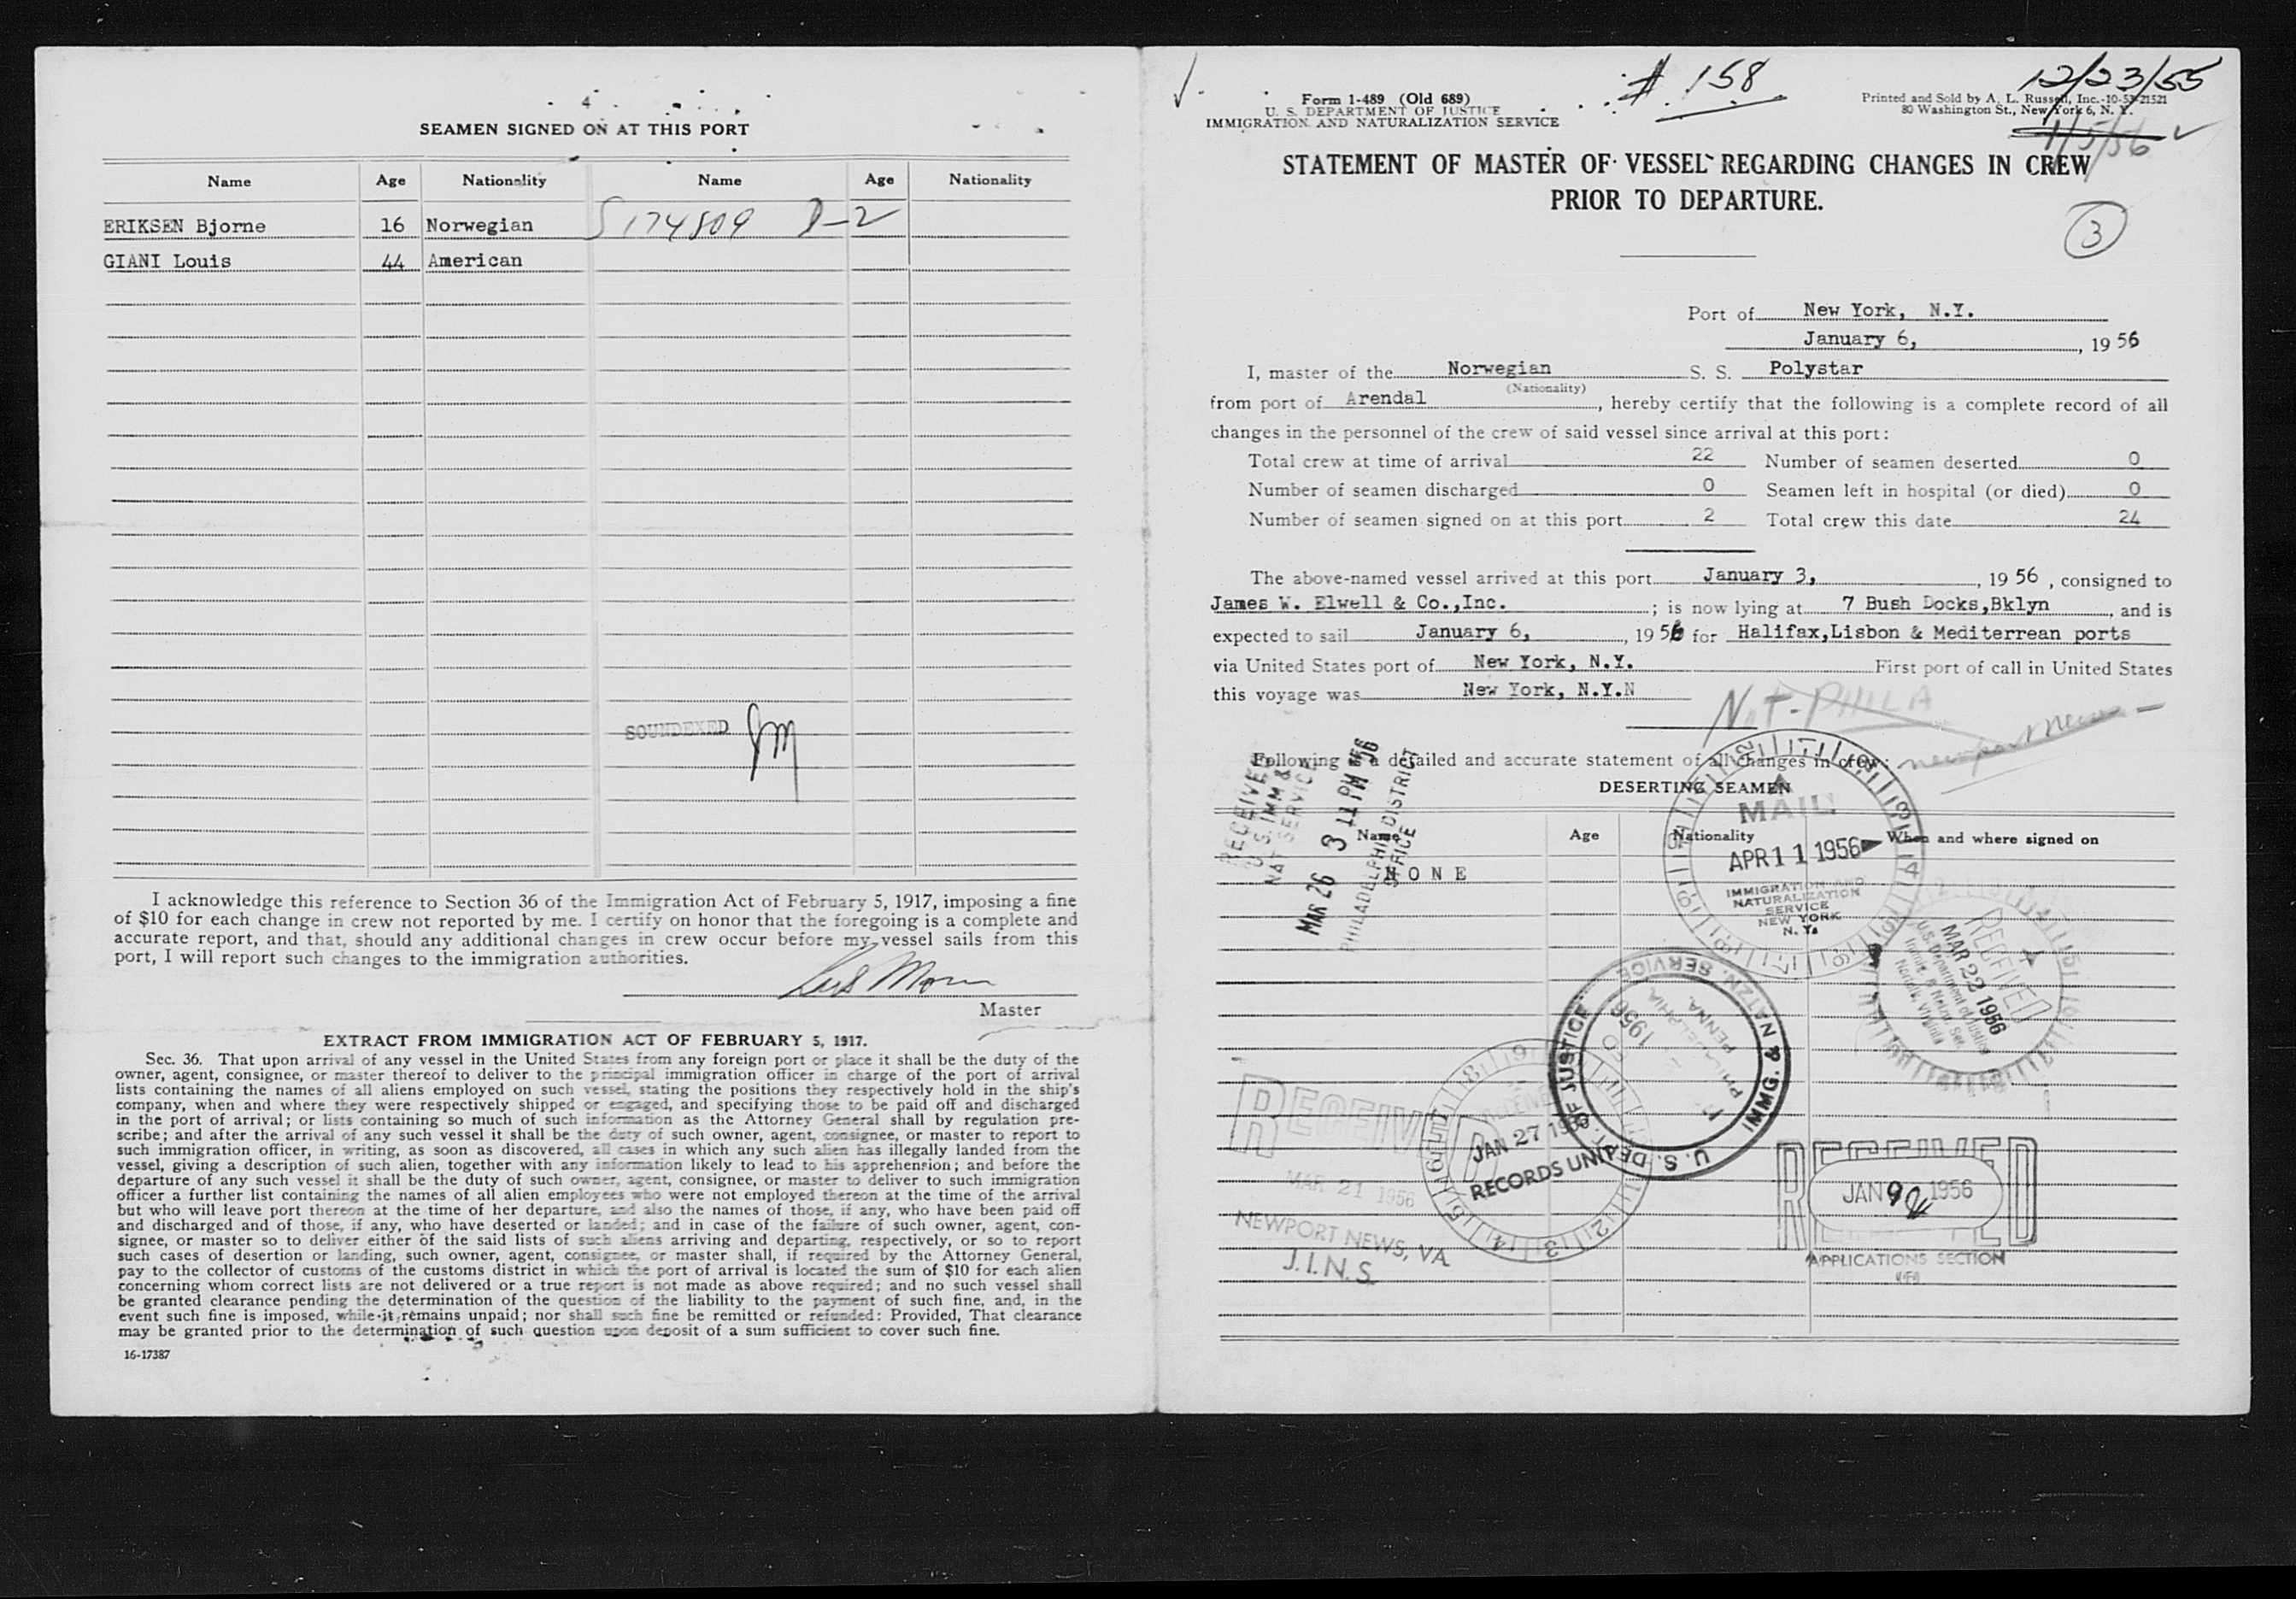 4
SEAMEN SIGNED ON AT THIS PORT
Name Age Nationality Name Age Nationality
ERIKSEN Bjorne 16 Norwegian S174809 D-2
GIANI Louis 44 American
SOUNDEXED
I acknowledge this reference to Section 36 of the Immigration Act of February 5, 1917, imposing a fine
of $10 for each change in crew not reported by me. I certify on honor that the foregoing is a complete and
accurate report, and that, should any additional changes in crew occur before my vessel sails from this
port, I will report such changes to the immigration authorities.
Master
EXTRACT FROM IMMIGRATION ACT OF FEBRUARY 5, 1917.
Sec. 36. That upon arrival of any vessel in the United States from any foreign port or place it shall be the duty of the
owner, agent, consignee, or master thereof to deliver to the principal immigration officer in charge of the port of arrival
lists containing the names of all aliens employed on such vessel, stating the positions they respectively hold in the ship's
company, when and where they were respectively shipped or engaged, and specifying those to be paid off and discharged
in the port of arrival; or lists containing so much of such information as the Attorney General shall by regulation pre-
scribe; and after the arrival of any such vessel it shall be the duty of such owner, agent, consignee, or master to report to
such immigration officer, in writing, as soon as discovered, all cases in which any such alien has illegally landed from the
vessel, giving a description of such alien, together with any information likely to lead to his apprehension; and before the
departure of any such vessel it shall be the duty of such owner, agent, consignee, or master to deliver to such immigration
officer a further list containing the names of all alien employees who were not employed thereon at the time of the arrival
but who will leave port thereon at the time of her departure, and also the names of those, if any, who have been paid off
and discharged and of those, if any, who have deserted or landed; and in case of the failure of such owner, agent, con-
signee, or master so to deliver either of the said lists of such aliens arriving and departing, respectively, or so to report
such cases of desertion or landing, such owner, agent, consignee, or master shall, if required by the Attorney General,
pay to the collector of customs of the customs district in which the port of arrival is located the sum of $10 for each alien
concerning whom correct lists are not delivered or a true report is not made as above required; and no such vessel shall
be granted clearance pending the determination of the question of the liability to the payment of such fine, and, in the
event such fine is imposed, while it remains unpaid; nor shall such fine be remitted or refunded: Provided, That clearance
may be granted prior to the determination of such question upon deposit of a sum sufficient to cover such fine.
16-17387
# 158
12/23/55
Form 1-489 (Old 689)
U. S. DEPARTMENT OF JUSTICE
IMMIGRATION AND NATURALIZATION SERVICE
Printed and Sold by A. L. Russell, Inc.-10-53-21521
80 Washington St., New York 6, N. Y.
1/5/56
STATEMENT OF MASTER OF VESSEL REGARDING CHANGES IN CREW
PRIOR TO DEPARTURE.
3
Port of New York, N.Y.
January 6, , 19 56
I, master of the Norwegian S. S. Polystar
(Nationality)
from port of Arendal , hereby certify that the following is a complete record of all
changes in the personnel of the crew of said vessel since arrival at this port:
Total crew at time of arrival 22 Number of seamen deserted 0
Number of seamen discharged 0 Seamen left in hospital (or died) 0
Number of seamen signed on at this port 2 Total crew this date 24
The above-named vessel arrived at this port January 3, , 19 56 , consigned to
James W. Elwell & Co.,Inc. ; is now lying at 7 Bush Docks,Bklyn , and is
expected to sail January 6, , 19 56 for Halifax,Lisbon & Mediterrean ports
via United States port of New York, N.Y. First port of call in United States
this voyage was New York, N.Y.N
Not - PHILA
newport news
Following is a detailed and accurate statement of all changes in crew:
DESERTING SEAMEN
Name Age Nationality When and where signed on
NONE
RECEIVED
U.S. IMM &
NAT SERVICE
MAR 26 3 11 PM '56
PHILADELPHIA DISTRICT
OFFICE
MAIL
APR 11 1956
IMMIGRATION AND
NATURALIZATION
SERVICE
NEW YORK
N. Y.
RECEIVED
MAR 22 1956
U.S. Department of Justice
Immig. & Natzn. Serv.
Norfolk, Virginia
U.S. DEPT. OF JUSTICE IMMG. & NATZN. SERVICE
1956
PHILADELPHIA,
PENNA.
RECEIVED
MAR 21 1956
NEWPORT NEWS, VA
J.I.N.S.
JAN 27 1956
RECORDS UNIT
RECEIVED
JAN 9 1956
APPLICATIONS SECTION